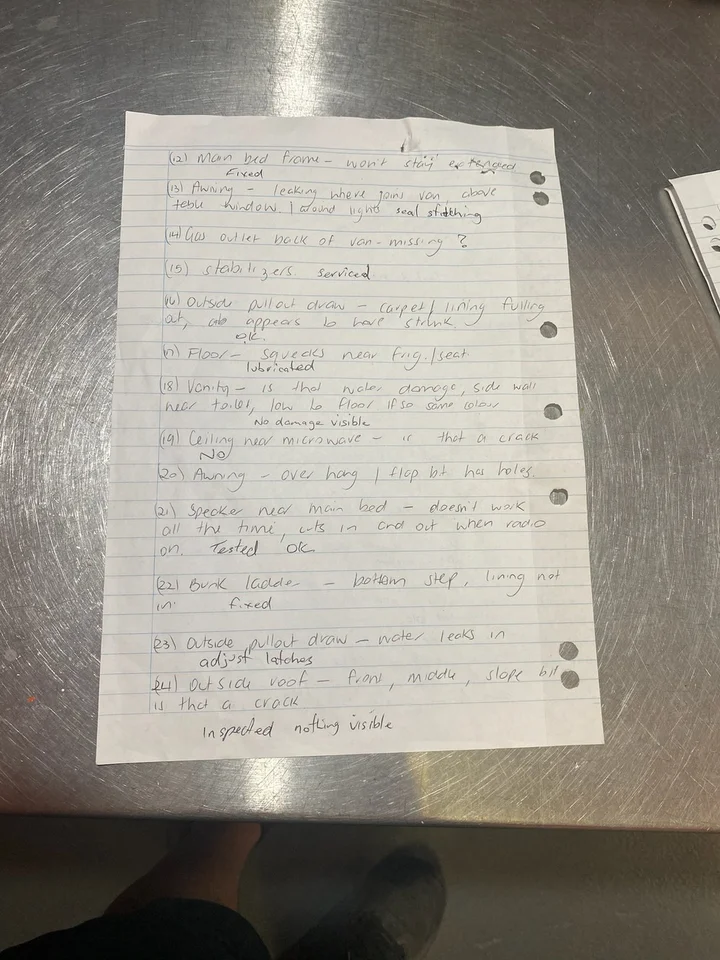 (12) Main bed frame - won't stay extended
Fixed
(13) Awning - leaking where joins van, above
table window / around lights seal stitching
(14) Gas outlet back of van - missing ?
(15) stabilizers. serviced
(16) Outside pullout draw - carpet / lining fulling
out, also appears to have strunk.
OK.
(17) Floor - squeaks near frig. / seat
lubricated
(18) Vanity - is that water damage, side wall
near toilet, low to floor if so same colour
No damage visible
(19) Ceiling near microwave - is that a crack
NO
(20) Awning - over hang / flap bit has holes.
(21) Speaker near main bed - doesn't work
all the time, cuts in and out when radio
on. Tested OK
(22) Bunk ladder - bottom step, lining not
in. fixed
(23) Outside pullout draw - water leaks in
adjust latches
(24) Outside roof - front, middle, slope bit
is that a crack
Inspected nothing visible